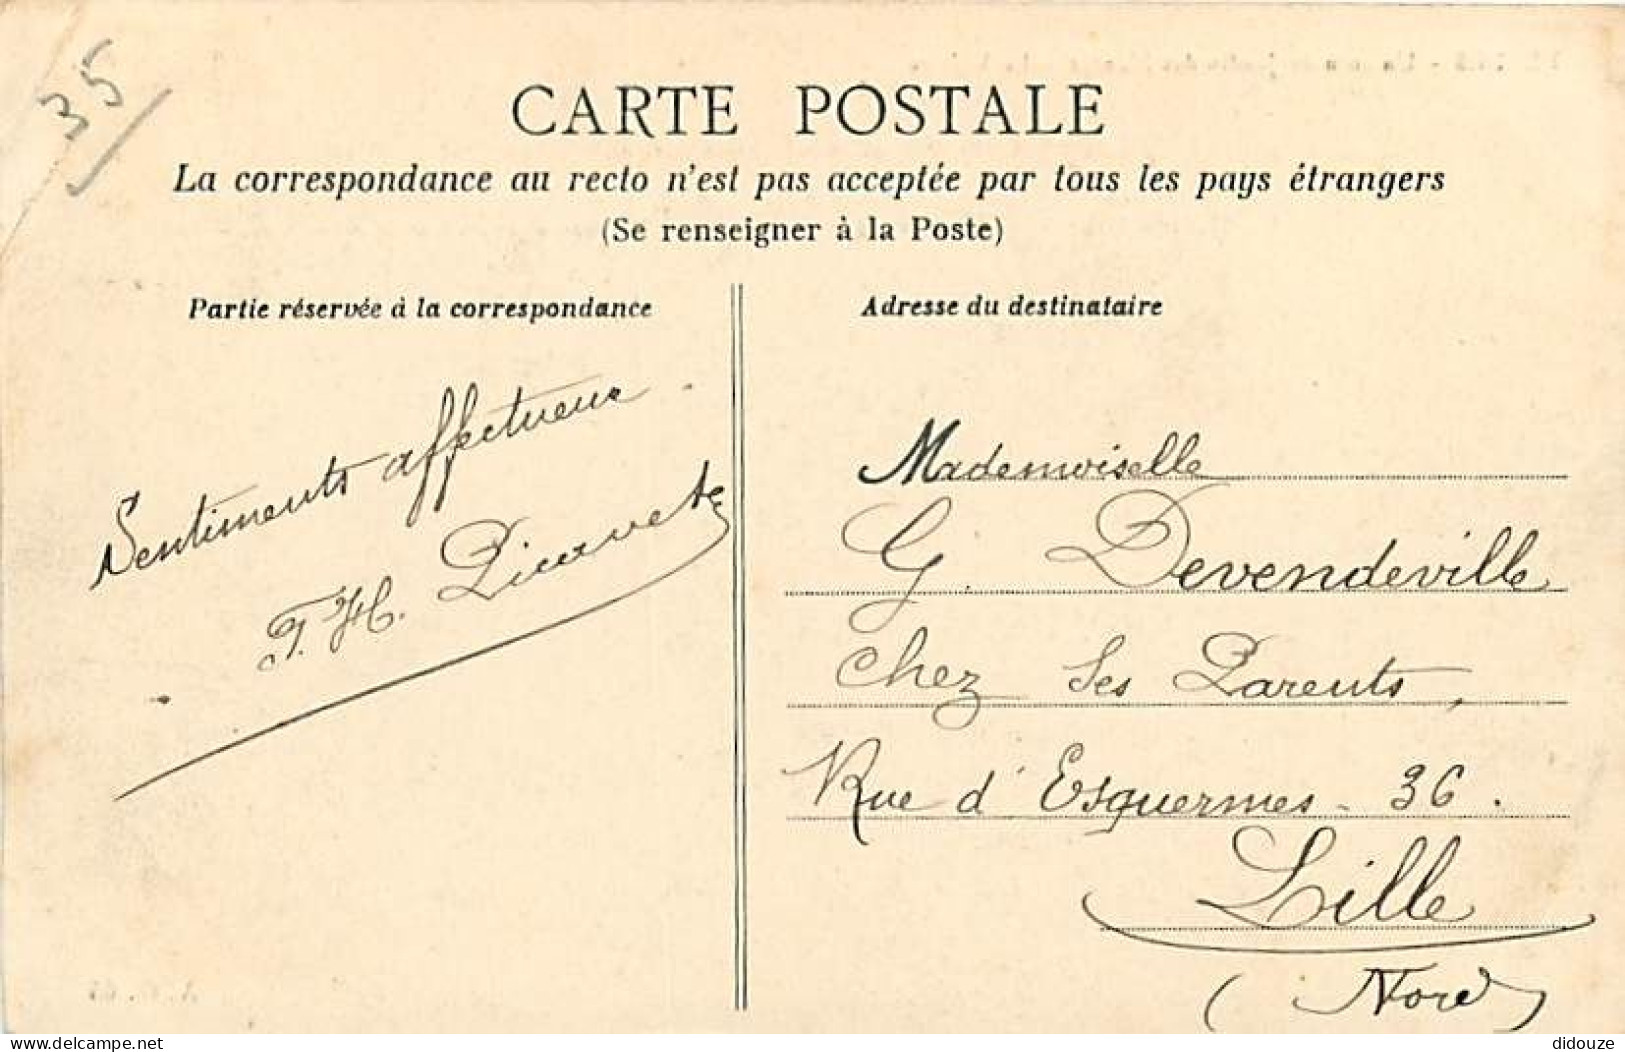 35
CARTE POSTALE
La correspondance au recto n'est pas acceptée par tous les pays étrangers
(Se renseigner à la Poste)
Partie réservée à la correspondance
Sentiments affectueux
T. H. Picavet
Adresse du destinataire
Mademoiselle
G. Devendeville
Chez Ses Parents,
Rue d'Esquermes - 36.
Lille
(Nord)
delcampe.net
didouze